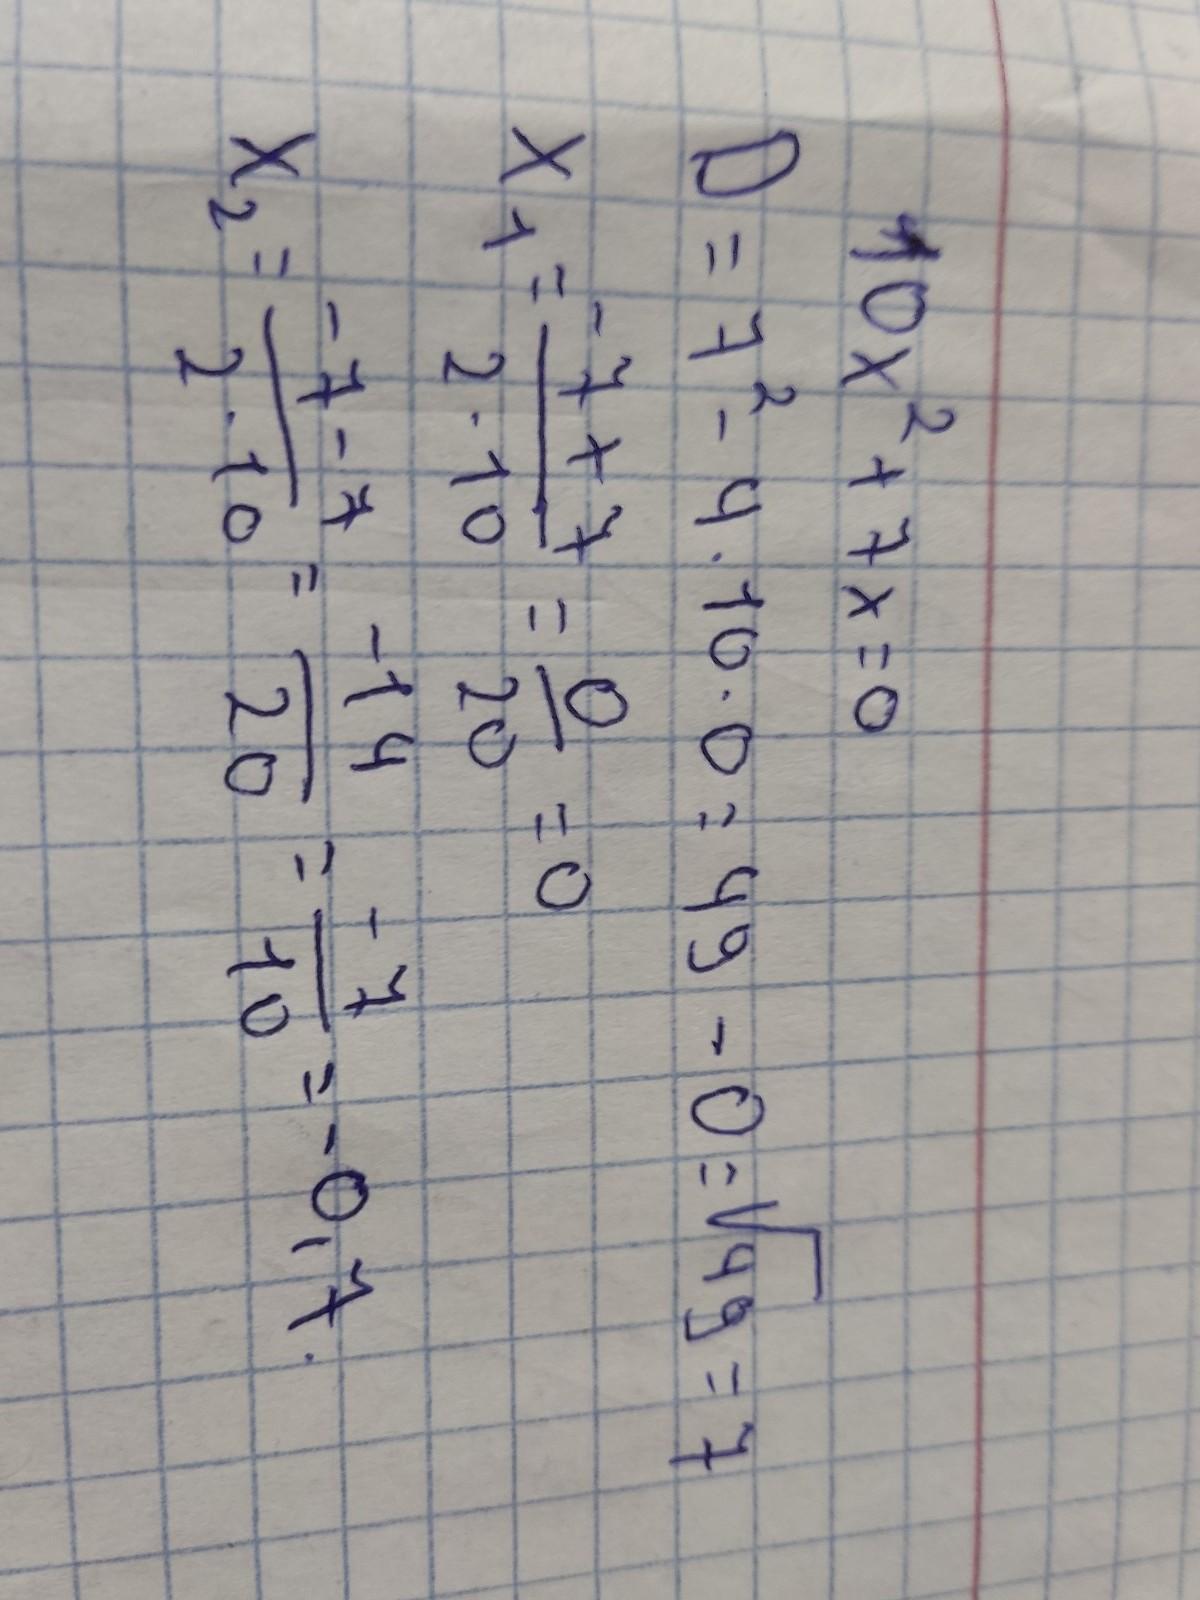 10x² + 7x = 0
D = 7² - 4 · 10 · 0 = 49 - 0 = √49 = 7
x₁ = (-7 + 7)/(2 · 10) = 0/20 = 0
x₂ = (-7 - 7)/(2 · 10) = -14/20 = -7/10 = -0,7.